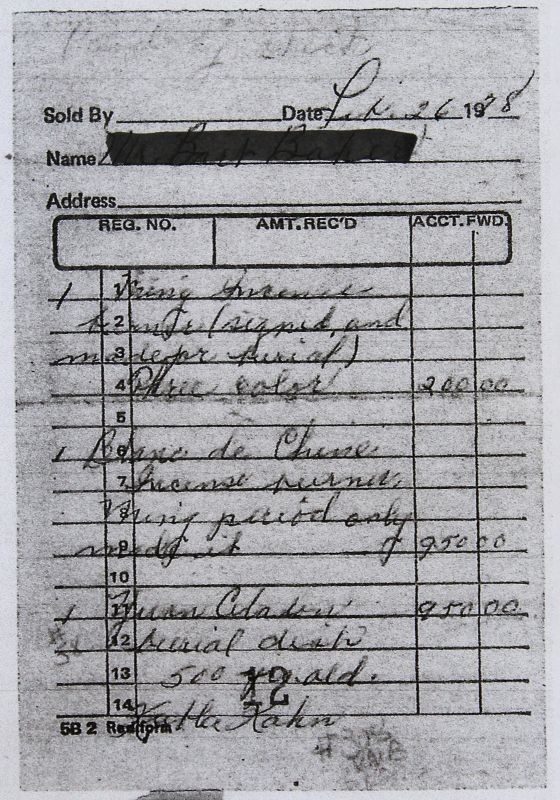 Sold By Date Feb. 26 1978
Name
Address
REG. NO. AMT. REC'D ACCT. FWD.
1 1 Ming Incense
2 burner (signed, and
3 made for burial)
4 Three color 200 00
5
1 6 Blanc de Chine
7 Incense burner
8 Ming period only
9 made it 950 00
10
1 11 Yuan Celadon 950 00
12 burial dish
13 500 yr. old.
12
14 Kahn
5B 2 Rediform